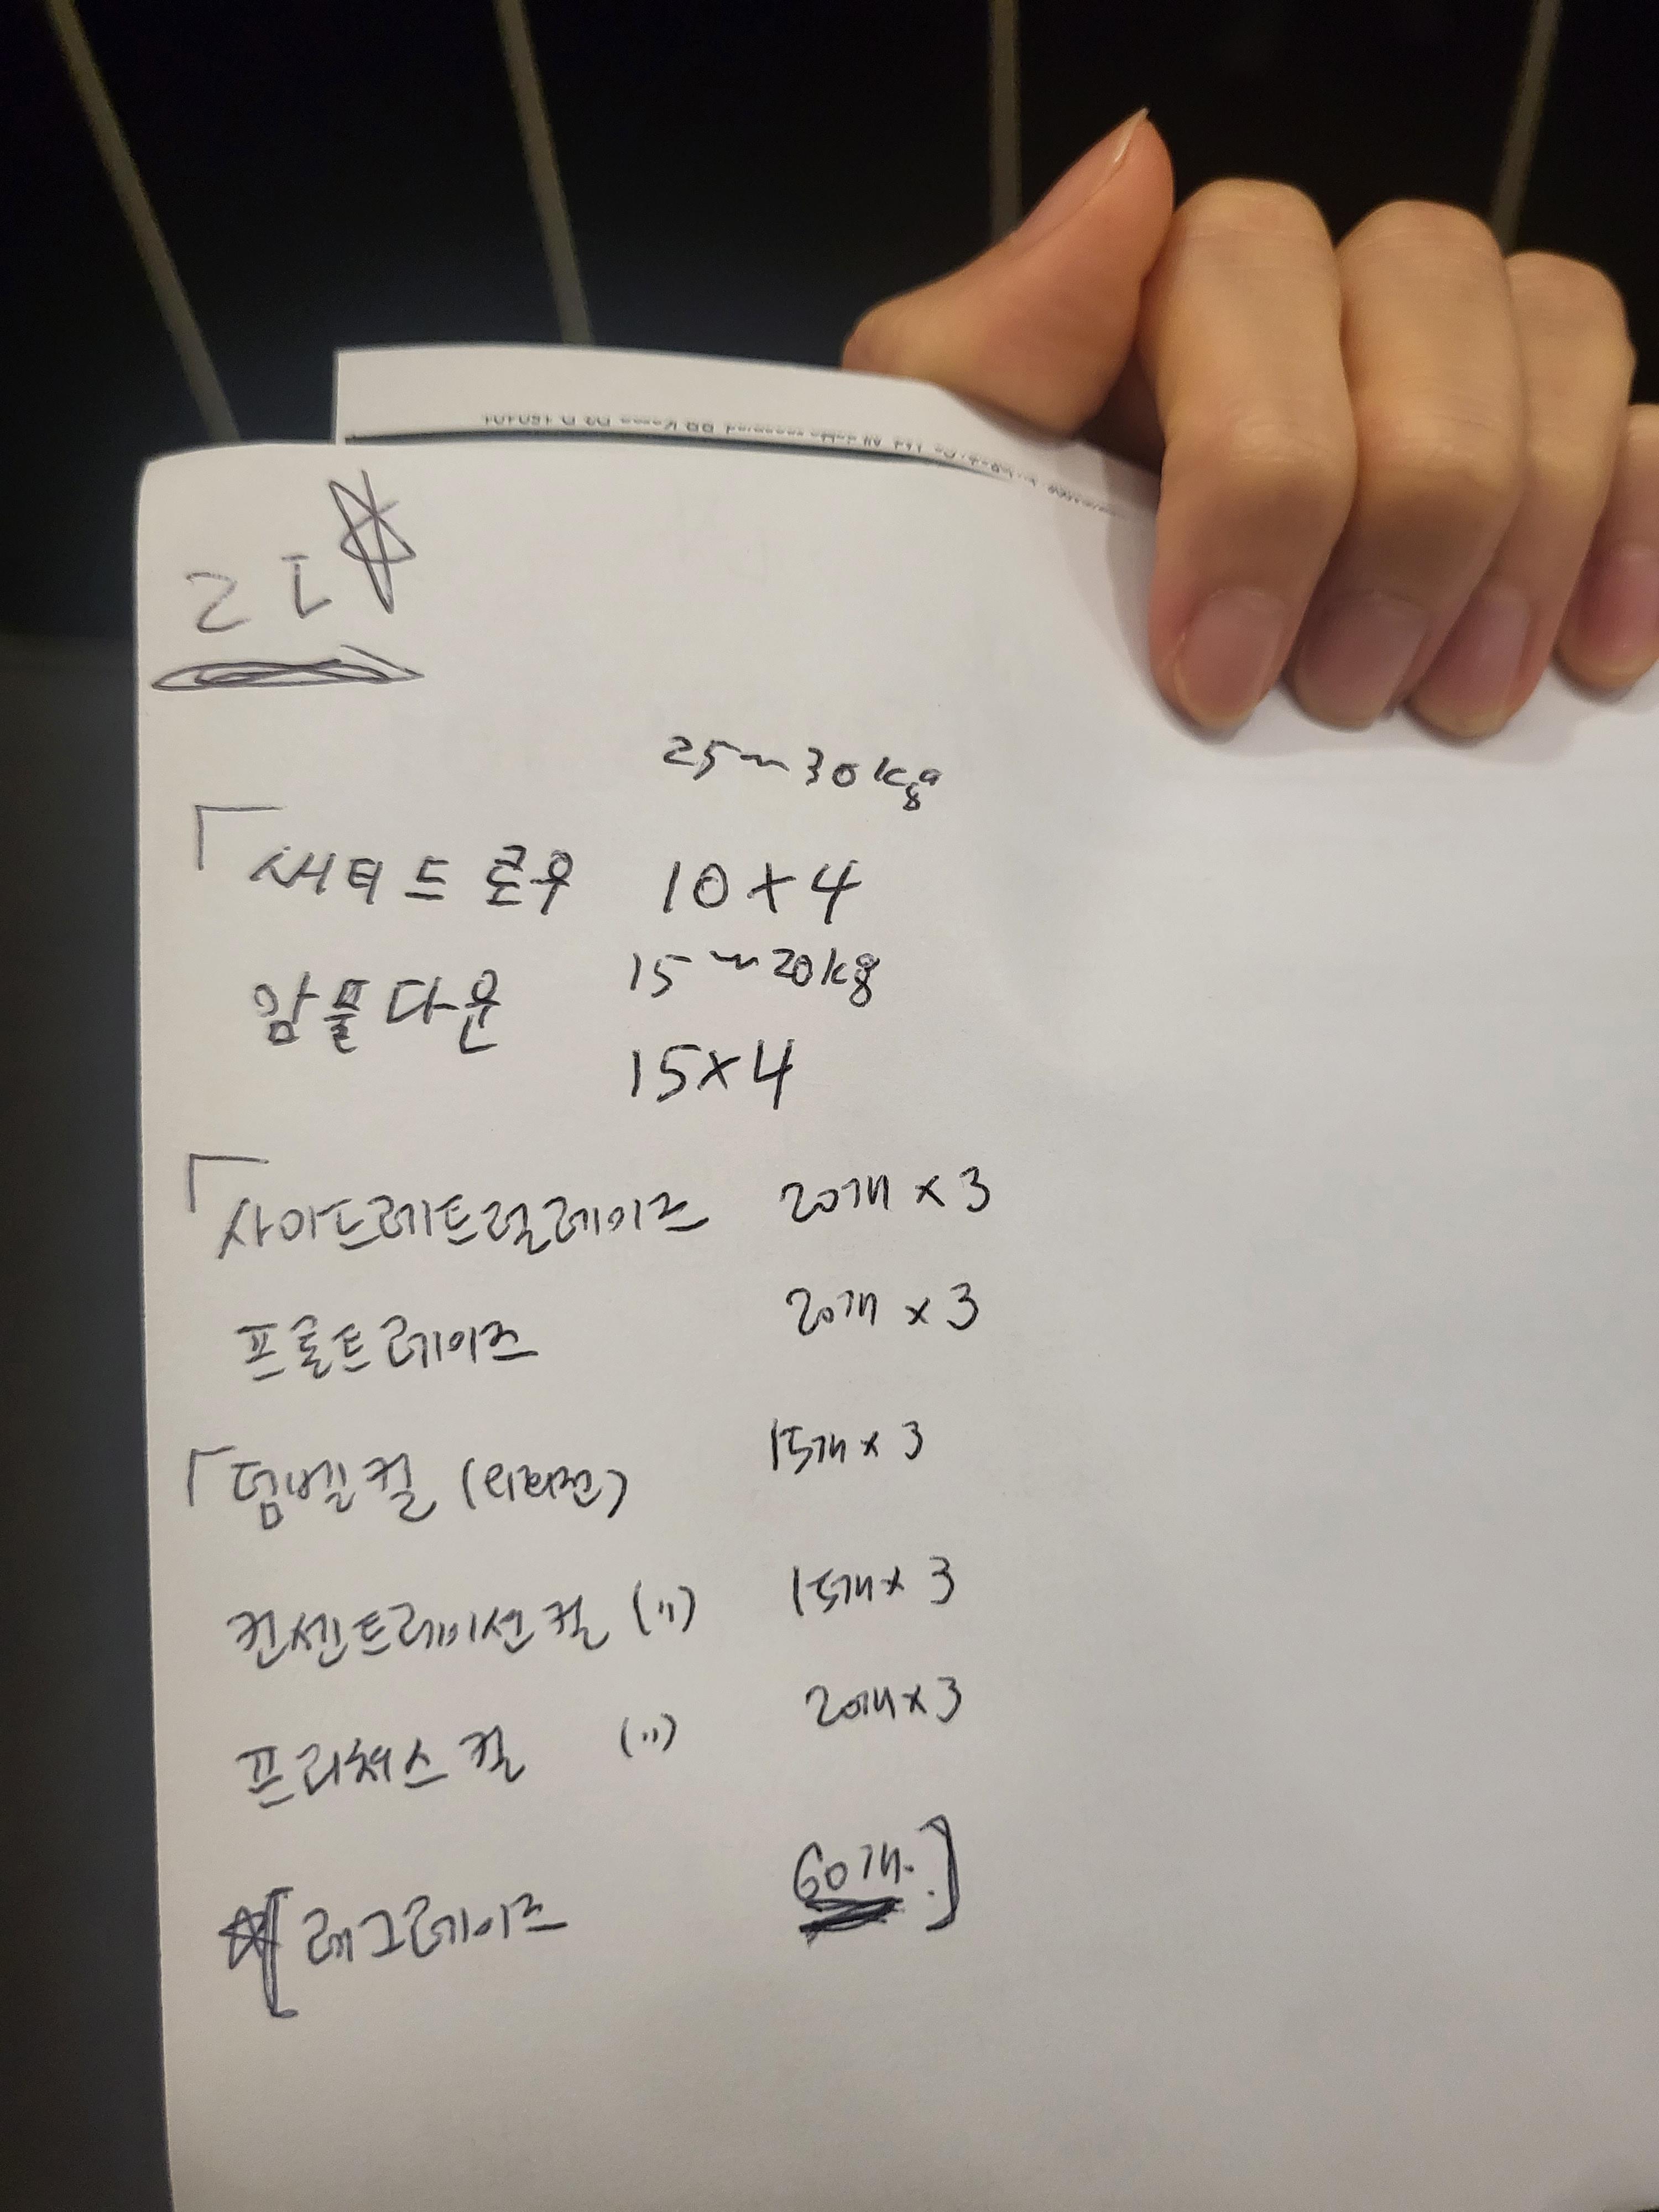 25~30kg
써티드 로우 10×4
암풀다운 15~20kg
15×4
사이드레트럴레이즈 20개 × 3
프론트레이즈 20개 × 3
덤벨컬 15개 × 3
컨센트레이션컬 (〃) 15개 × 3
프리쳐스컬 (〃) 20개 × 3
레그레이즈 60개.